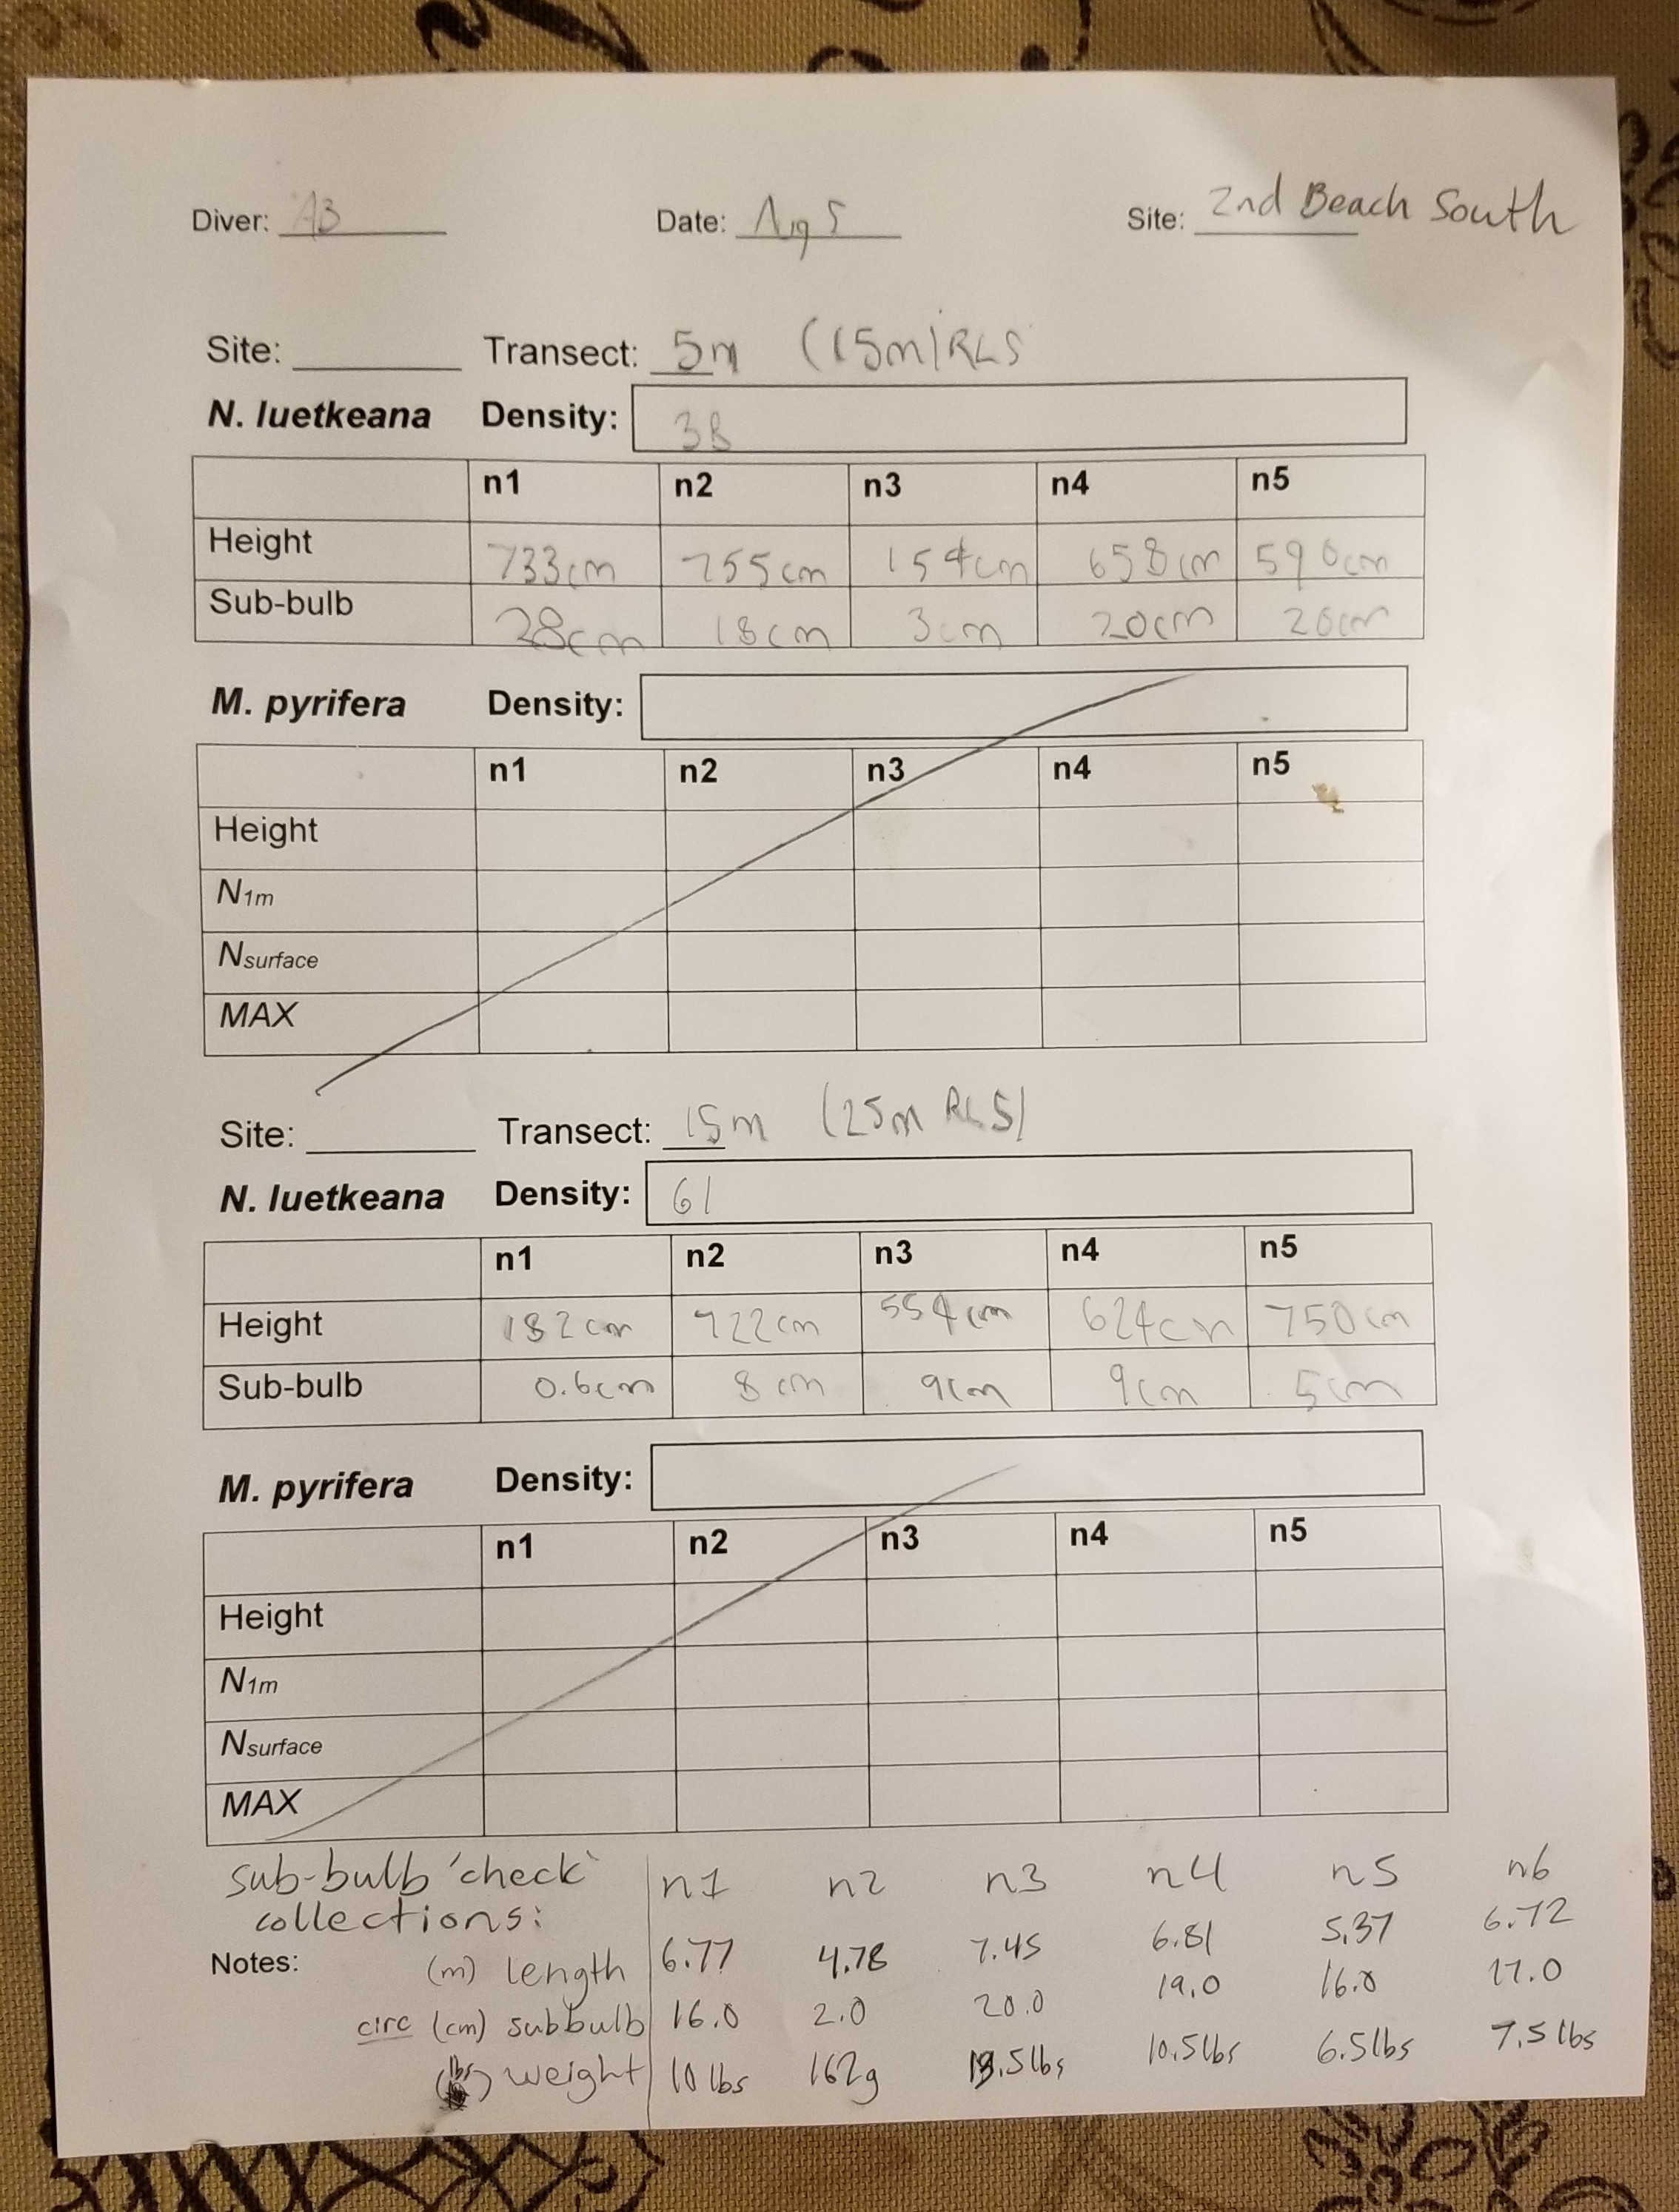 Diver: AB Date: Aug 5 Site: 2nd Beach South
Site: Transect: 5m (15m) RLS
N. luetkeana Density: 38
n1 n2 n3 n4 n5
Height 733cm 755cm 154cm 658cm 590cm
Sub-bulb 28cm 18cm 3cm 20cm 20cm
M. pyrifera Density:
n1 n2 n3 n4 n5
Height
N1m
Nsurface
MAX
Site: Transect: 15m (25m RLS)
N. luetkeana Density: 61
n1 n2 n3 n4 n5
Height 182cm 722cm 554cm 624cm 750cm
Sub-bulb 0.6cm 8cm 9cm 9cm 5cm
M. pyrifera Density:
n1 n2 n3 n4 n5
Height
N1m
Nsurface
MAX
sub-bulb 'check' n1 n2 n3 n4 n5 n6
collections:
Notes: (m) length 6.77 4.78 7.45 6.81 5.37 6.72
circ (cm) subbulb 16.0 2.0 20.0 19.0 16.0 17.0
(lbs) weight 10 lbs 162g 10.5lbs 6.5lbs 7.5 lbs